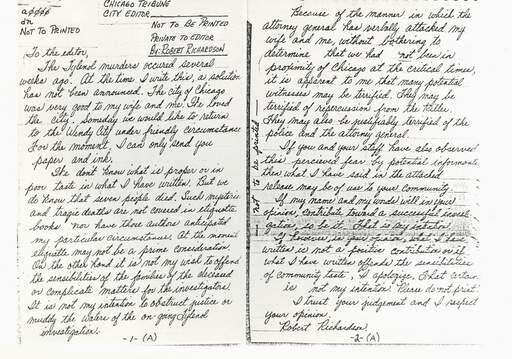 CHICAGO TRIBUNE
CITY EDITOR
NOT TO PRINTED
NOT TO BE PRINTED
PRIVATE TO EDITOR
BY: ROBERT RICHARDSON
To the editor,
The Tylenol murders occured several
weeks ago. At the time I write this, a solution
has not been announced. The city of Chicago
was very good to my wife and me. We loved
the city. Someday we would like to return
to the Windy City under friendly circumstance
For the moment, I can only send you
paper and ink.
We dont know what is proper or in
poor taste in what I have written. But we
do know that seven people died. Such mysterie
and tragic deaths are not covered in etiquette
books nor have those authors anticipate
my particular circumstances. At the moment
etiquette may not be a prime consideration.
On the other hand it is not my wish to offend
the sensibilities of the families of the deceased
or complicate matters for the investigators.
It is not my intention to obstruct justice or
muddy the waters of the on-going Tylenol
investigation.
-1- (A)
Because of the manner in which the
attorney general has verbally attacked my
wife and me, without bothering to
determine that we had not been in
proximity of Chicago at the critical times,
it is apparent to me that many potential
witnesses may be terrified. They may be
terrified of repercussion from the killer.
They may also be justifiably terrified of the
police and the attorney general.
If you and your staff have also observed
this perceived fear by potential informants,
then what I have said in the attached
release may be of use to your community.
If my name and my words will in your
opinion, contribute toward a successful invest
gation, so be it. That is my intention.
If however, in your opinion, what I have
written is not a positive contribution or if
what I have written offends the sensibilities
of community taste, I apologize. That certain
is not my intention. Please do not print.
I trust your judgement and I respect
your opinion.
Robert Richardson
-2- (A)
not to be printed